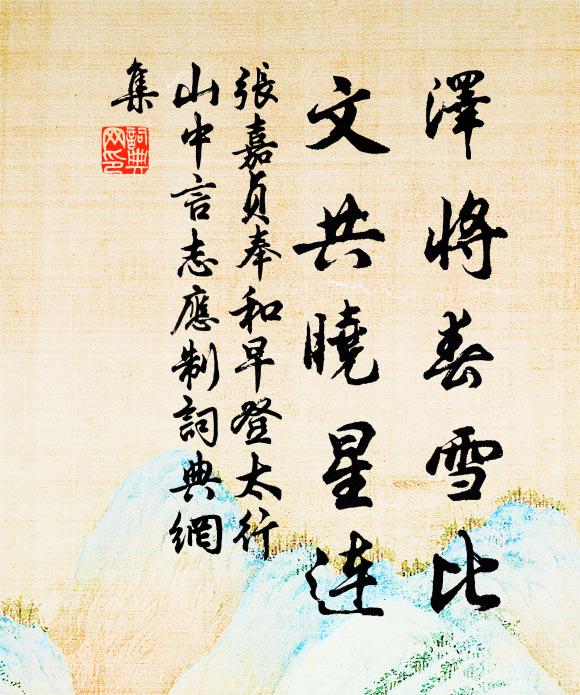 澤將春雪比
文共曉星連
張嘉貞奉和早登太行
山中言志應制詞典網
集
詞典網印